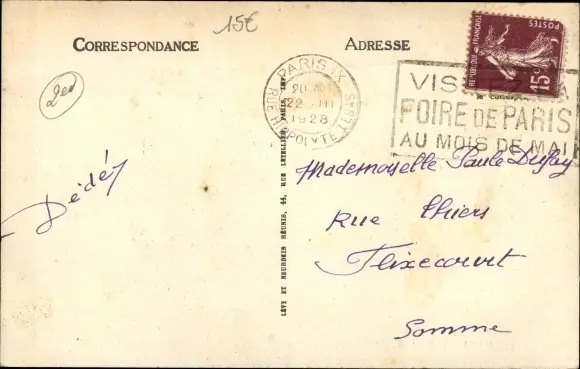 15€
CORRESPONDANCE
ADRESSE
2en
PARIS IX
RUE HIPPOLYTE LEBAS
20
22 III
1928
VISITEZ LA
FOIRE DE PARIS
AU MOIS DE MAI
REPUBLIQUE FRANÇAISE
POSTES
15c
Dédéy
Mademoiselle Paule Dufay
Rue Thiers
Flixecourt
Somme
LÉVY ET NEURDEIN RÉUNIS, 44, RUE LETELLIER, PARIS, IMP.